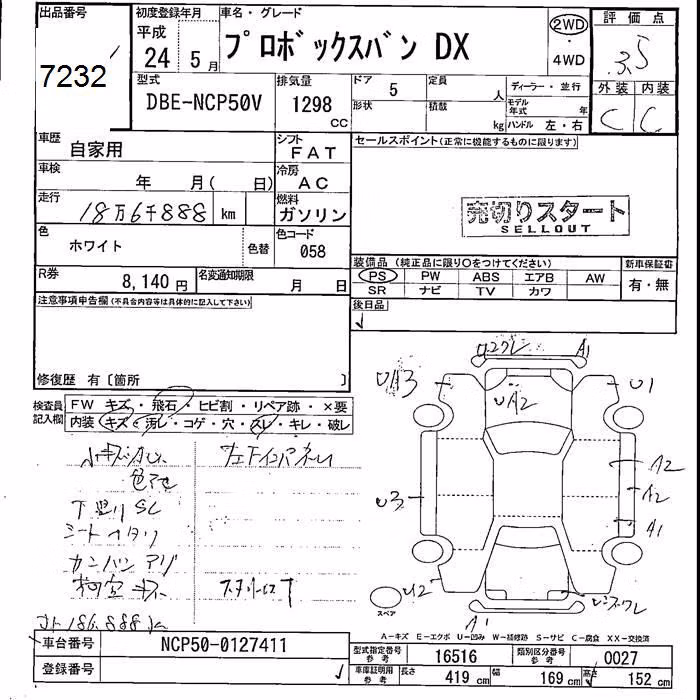 出品番号
7232
初度登録年月
平成
24 5 月
車名・グレード
プロボックスバン DX
2WD
・
4WD
評価点
3.5
外装 内装
C C
型式
DBE-NCP50V
排気量
1298
CC
ドア 5
形状
定員 人
積載 kg
ディーラー・並行
モデル年式 年
ハンドル 左・右
車歴
自家用
シフト
FAT
セールスポイント(正常に機能するものに限ります)
車検
年 月( 日)
冷房
AC
走行
18万6千888 km
燃料
ガソリン
売切りスタート
SELLOUT
色
ホワイト
色替
色コード
058
装備品(純正品に限り○をつけてください)
PS PW ABS エアB AW
SR ナビ TV カワ
新車保証書
有・無
R券
8,140 円
名変通知期限
月 日
後日品
注意事項申告欄(不具合内容等は具体的に記入して下さい)
修復歴 有〔箇所 〕
検査員記入欄
FW キズ・飛石・ヒビ割・リペア跡・×要
内装 キズ・汚レ・コゲ・穴・スレ・キレ・破レ
色アセ
下廻り SC
シートヘタリ
カンバンアリ
A1
UA3
UA2
U1
A2
A2
U3
A1
U2
A1
スペア
A-キズ E-エクボ U-凹み W-補修跡 S-サビ C-腐食 XX-交換済
車台番号 NCP50-0127411
登録番号
型式指定番号 参考 16516
類別区分番号 参考 0027
車庫証明用 参考 長さ 419 cm 幅 169 cm 高さ 152 cm